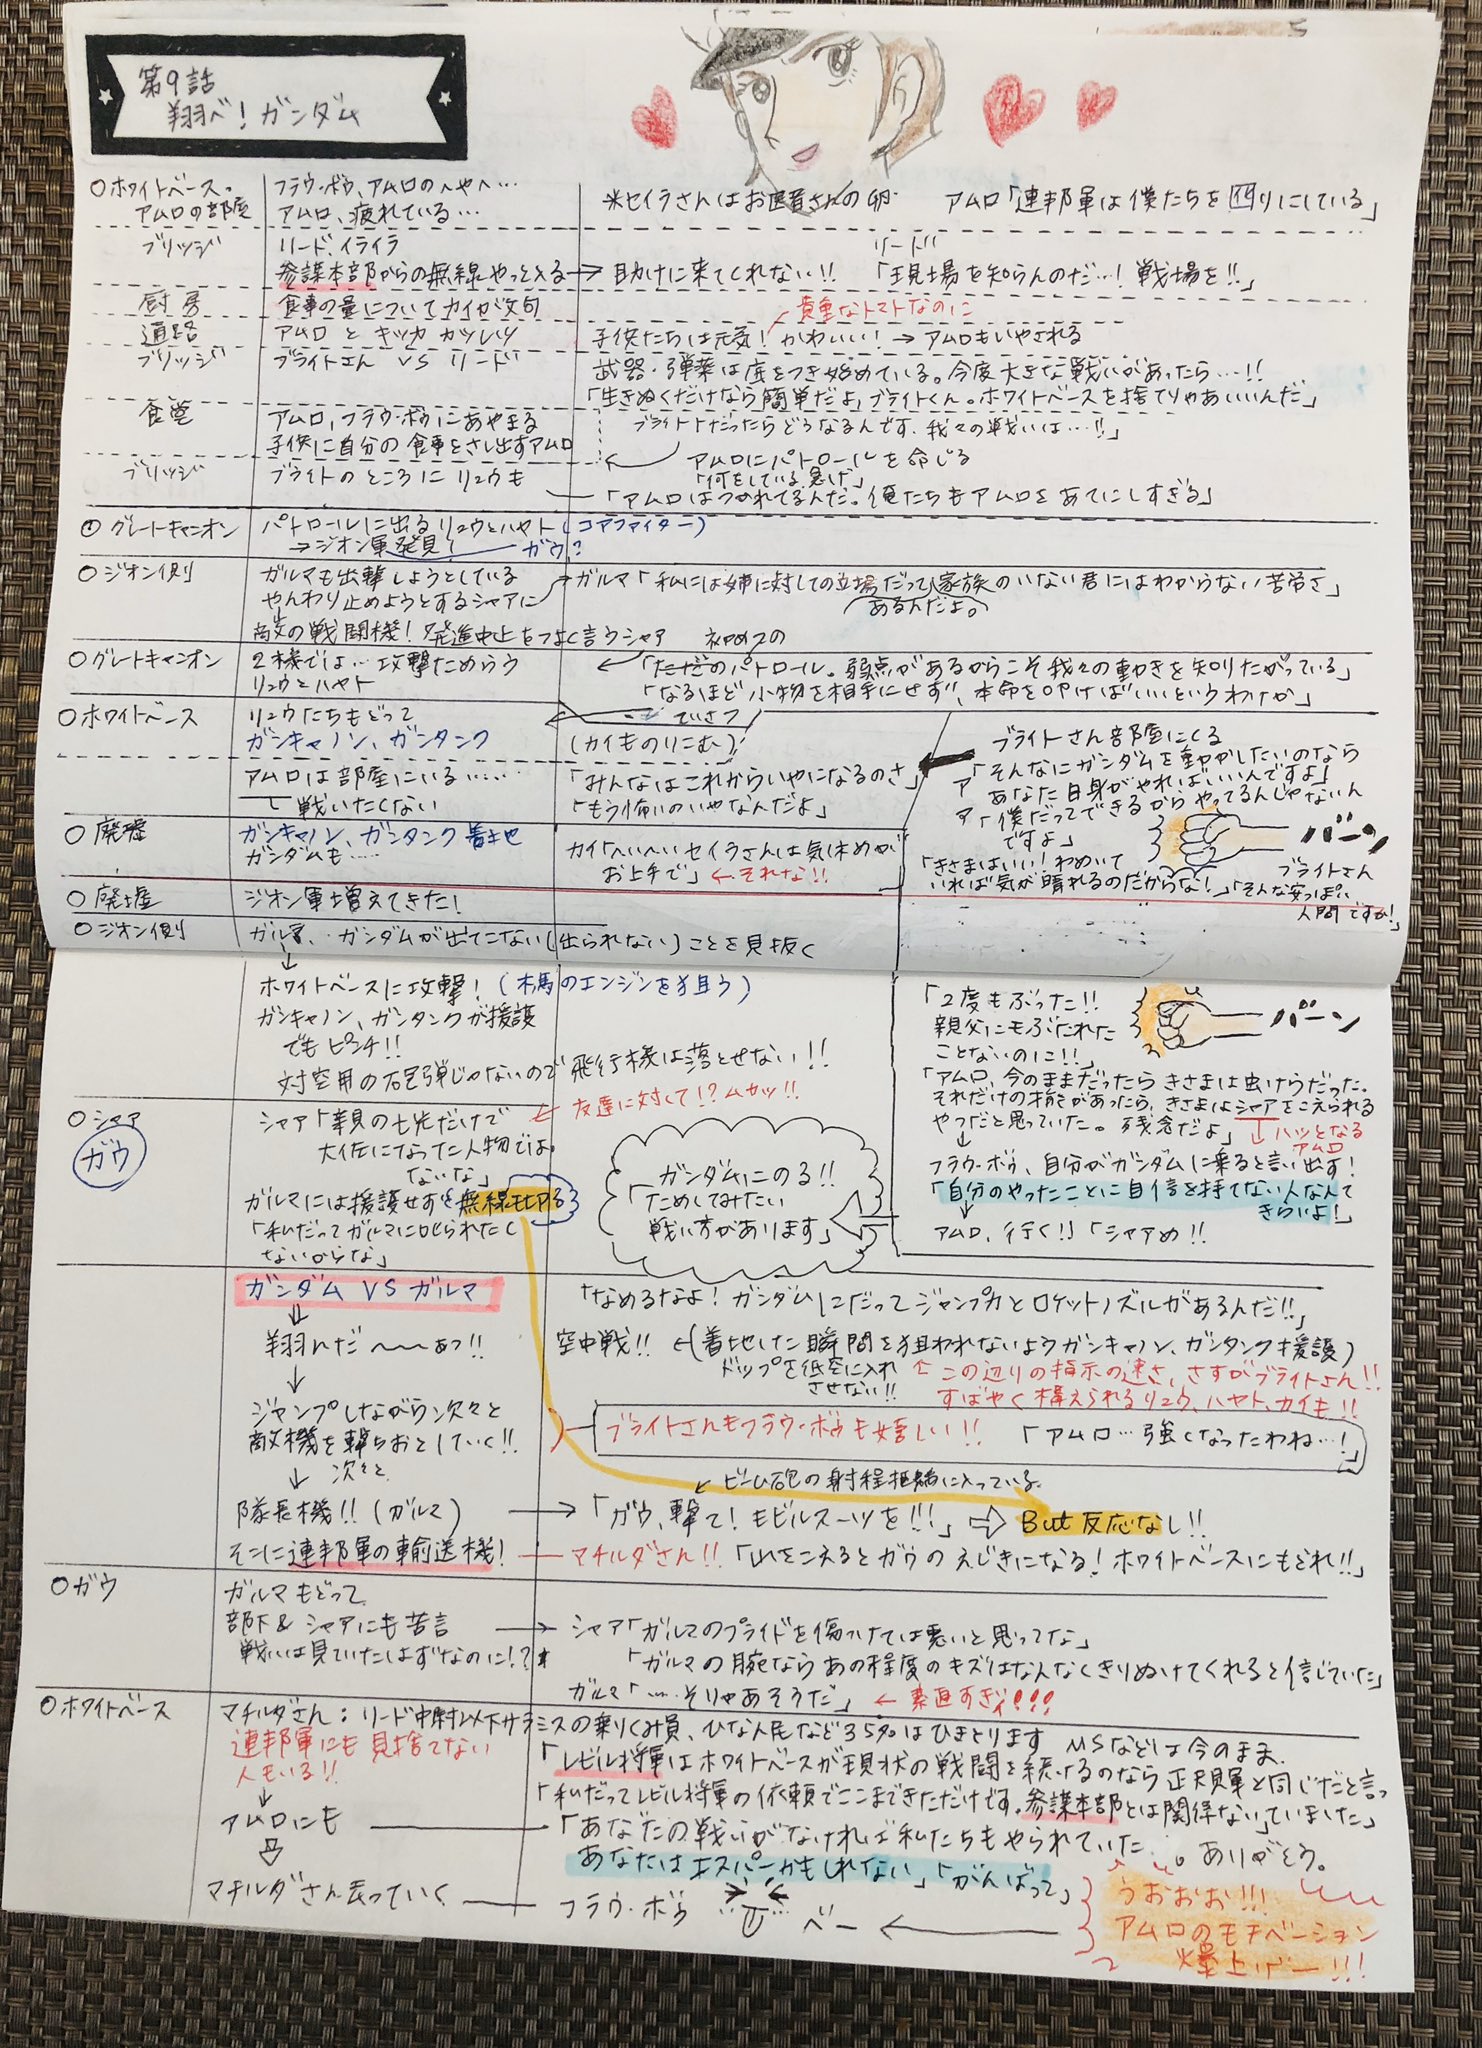 第9話
翔べ！ガンダム
○ホワイトベース・アムロの部屋
フラウ・ボウ、アムロのへやへ…
アムロ、疲れている…
※セイラさんはお医者さんの卵
アムロ「連邦軍は僕たちを囮りにしている」
ブリッジ
リード、イライラ
参謀本部からの無線やっと入る→助けに来てくれない!!
リード「現場を知らんのだ…！戦場を!!」
厨房
食事の量についてカイが文句
貴重なトマトなのに
通路
アムロとキッカ カツレツ
子供たちは元気！かわいい！→アムロもいやされる
ブリッジ
ブライトさん VS リード
武器・弾薬は底をつき始めている。今度大きな戦いがあったら…!!
「生きぬくだけなら簡単だよ、ブライトくん。ホワイトベースを捨てりゃあいいんだ」
ブライト「だったらどうなるんです、我々の戦いは…!!」
食堂
アムロ、フラウ・ボウにあやまる
子供に自分の食事をさし出すアムロ
アムロにパトロールを命じる
「何をしている、急げ」
ブリッジ
ブライトのところにリュウも
「アムロはつかれてるんだ。俺たちもアムロをあてにしすぎる」
○グレートキャニオン
パトロールに出るリュウとハヤト(コアファイター)
→ジオン軍発見！
ガウ？
○ジオン側
ガルマも出撃しようとしている
やんわり止めようとするシャアに
ガルマ「私には姉に対しての立場だってあるんだよ。家族のいない君にはわからない苦労さ」
敵の戦闘機！発進中止をつよく言うシャア
○グレートキャニオン
2機では…攻撃ためらう
リュウとハヤト
初めての
「ただのパトロール。弱点があるからこそ我々の動きを知りたがっている」
「なるほど小物を相手にせず、本命を叩けばいいというわけか」
ていさつ
○ホワイトベース
リュウたちもどって
ガンキャノン、ガンタンク
(カイものりこむ)
アムロは部屋にいる……
戦いたくない
「みんなはこれからいやになるのさ」
「もう怖いのいやなんだよ」
ブライトさん部屋にくる
ア「そんなにガンダムを動かしたいのなら
あなた自身がやればいいんですよ」
ア「僕だってできるからやってるんじゃないん
ですよ」
バーン
ブライトさん
「きさまはいい！わめいて
いれば気が晴れるのだからな！」「そんな安っぽい
人間ですか！」
○廃墟
ガンキャノン、ガンタンク着地
ガンダムも……
カイ「へいへいセイラさんは気休めが
お上手で」←それな!!
○廃墟
ジオン軍増えてきた！
○ジオン側
ガルマ、ガンダムが出てこない(出られない)ことを見抜く
↓
ホワイトベースに攻撃！(木馬のエンジンを狙う)
ガンキャノン、ガンタンクが援護
でもピンチ!!
対空用の砲弾じゃないので飛行機は落とせない!!
「2度もぶった!!
親父にもぶたれた
ことないのに!!」
バーン
「アムロ、今のままだったらきさまは虫けらだった。
それだけの才能があったら、きさまはシャアをこえられる
やつだと思っていた。残念だよ」
↓ハッとなる
アムロ
↓
フラウ・ボウ、自分がガンダムに乗ると言い出す！
「自分のやったことに自信を持てない人なんて
きらいよ！」
↓
アムロ、行く!!「シャアめ!!」
○シャア
ガウ
シャア「親の七光だけで
大佐になった人物では
ないな」
←友達に対して!?ムカッ!!
ガルマには援護せず(無線も切る)
「私だってガルマに叱られたく
ないからな」
ガンダムにのる!!
「ためしてみたい
戦い方があります」
ガンダム VS ガルマ
「なめるなよ！ガンダムにだってジャンプ力とロケットノズルがあるんだ!!」
↓
翔んだ〜〜〜あっ!!
空中戦!!←(着地した瞬間を狙われないようガンキャノン、ガンタンク援護)
ドップを低空に入れ
させない!!
←この辺りの指示の速さ、さすがブライトさん!!
すばやく構えられるリュウ、ハヤト、カイも!!
↓
ジャンプしながら次々と
敵機を撃ちおとしていく!!
次々と
ブライトさんもフラウ・ボウも嬉しい!!「アムロ…強くなったわね…！」
↓
隊長機!!(ガルマ)→「ガウ、撃て！モビルスーツを!!!」⇒But 反応なし!!
ビーム砲の射程距離に入っている
そこに連邦軍の輸送機！―マチルダさん!!「山をこえるとガウのえじきになる！ホワイトベースにもどれ!!」
○ガウ
ガルマもどって
部下＆シャアにも苦言
戦いは見ていたはずなのに!?
→シャア「ガルマのプライドを傷つけては悪いと思ってな」
「ガルマの腕ならあの程度のキズはなんなくきりぬけてくれると信じていた」
ガルマ「……そりゃあそうだ」←素直すぎ!!!
○ホワイトベース
マチルダさん：リード中尉以下サラミスの乗りくみ員、ひなん民など35%はひきとります MSなどは今のまま
連邦軍にも見捨てない
人もいる!!
「レビル将軍はホワイトベースが現状の戦闘を続けるのなら正規軍と同じだと言っていました」
「私だってレビル将軍の依頼でここまできただけです。参謀本部とは関係ない」
↓
アムロにも―「あなたの戦いがなければ私たちもやられていた…。ありがとう。
あなたはエスパーかもしれない」「がんばって」
うおおお!!!
アムロのモチベーション
爆上げー!!!
⇩
マチルダさん去っていく―フラウ・ボウ ベー